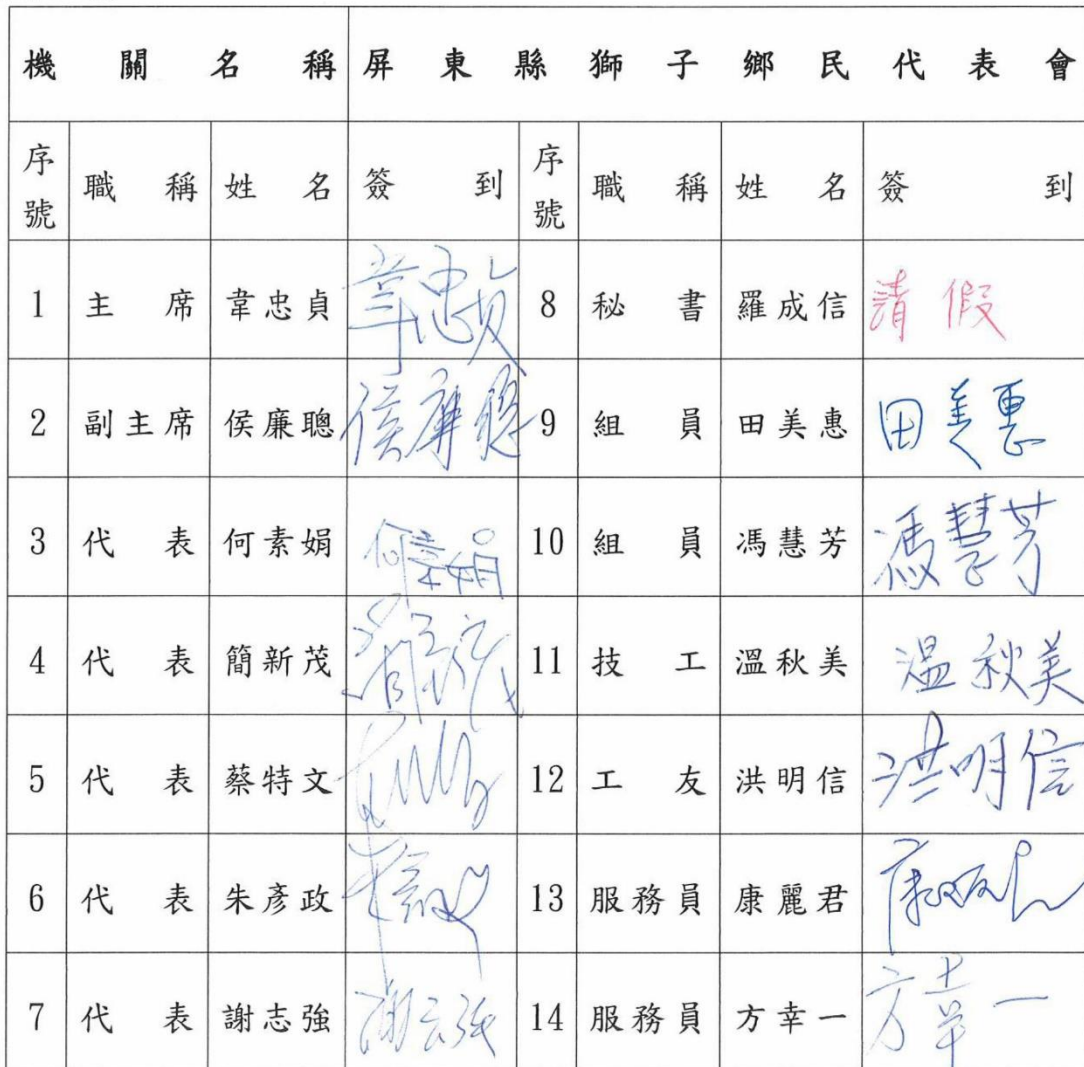 機關名稱 屏東縣獅子鄉民代表會
序號 職稱 姓名 簽到 序號 職稱 姓名 簽到
1 主席 韋忠貞 韋忠貞 8 秘書 羅成信 請假
2 副主席 侯廉聰 侯廉聰 9 組員 田美惠 田美惠
3 代表 何素娟 何素娟 10 組員 馮慧芳 馮慧芳
4 代表 簡新茂 簡新茂 11 技工 溫秋美 温秋美
5 代表 蔡特文 12 工友 洪明信 洪明信
6 代表 朱彥政 朱彥政 13 服務員 康麗君 康麗君
7 代表 謝志強 謝志強 14 服務員 方幸一 方幸一